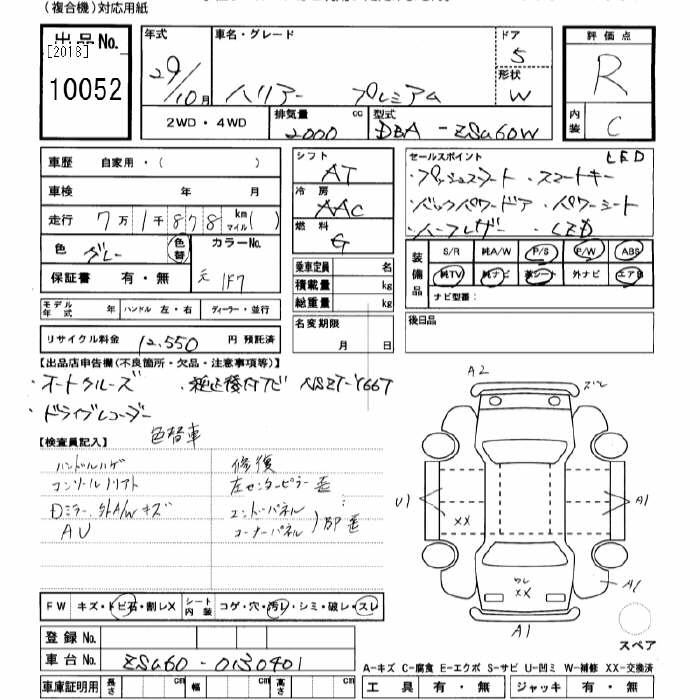 (複合機)対応用紙
出品No.
[2018]
10052
年式
29/10月
車名・グレード
ハリアー プレミアム
ドア
5
形状
W
評価点
R
内装
C
2WD・4WD
排気量 cc
2000
型式
DBA-ZSU60W
車歴 自家用・( )
車検 年 月
走行 7万1千878 km マイル( )
色 グレー 色替
カラーNo.
元 1F7
保証書 有・無
モデル年式 年 ハンドル 左・右 ディーラー・並行
リサイクル料金 12,550 円 預託済
シフト
AT
冷房
AAC
燃料
G
乗車定員 名
積載量 kg
総重量 kg
名変期限
月 日
セールスポイント LED
・プッシュスタート ・スマートキー
・バックパワードア ・パワーシート
・ハーフレザー ・LED
装備品
S/R 純A/W P/S P/W ABS
純TV 純ナビ 革シート 外ナビ エアB
ナビ型番:
後日品
【出品店申告欄(不良箇所・欠品・注意事項等)】
・オートクルーズ ・純正後付ナビ NSZT-Y66T
・ドライブレコーダー
【検査員記入】
色替車
ハンドルハゲ
コンソールリフト
Dミラー、外A/Wキズ
AU
修復
左センターピラー歪
エンドパネル
コーナーパネル
)即歪
A2
U1
XX
A1
ワレ
XX
A1
A1
スペア
FW キズ・トビ石・割レX シート内装 コゲ・穴・汚レ・シミ・破レ・スレ
登録No.
車台No. ZSU60-0130401
車庫証明用 長さ cm 幅 cm 高さ cm
A-キズ C-腐食 E-エクボ S-サビ U-凹ミ W-補修 XX-交換済
工具 有・無 ジャッキ 有・無